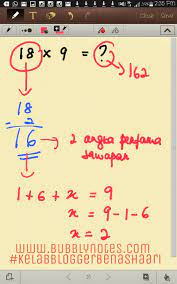 2:56 PM
18 × 9 = ?
162
18
- 2
16
2 angka pertama
jawapan
1 + 6 + x = 9
x = 9 - 1 - 6
x = 2
WWW.BUBBLYNOTES.COM
#KELABBLOGGERBENASHAARI